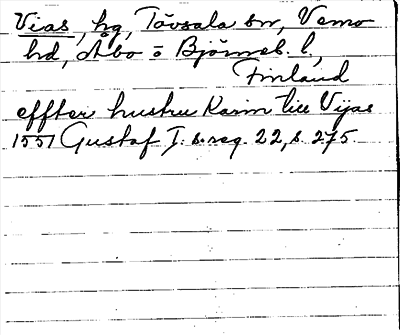 Vias, hg, Tövsala sn, Vemo
hd, Åbo o Björneb. l,
Finland
effter hustru Karin till Vijas
1551 Gustaf I. s. reg. 22, s. 275.